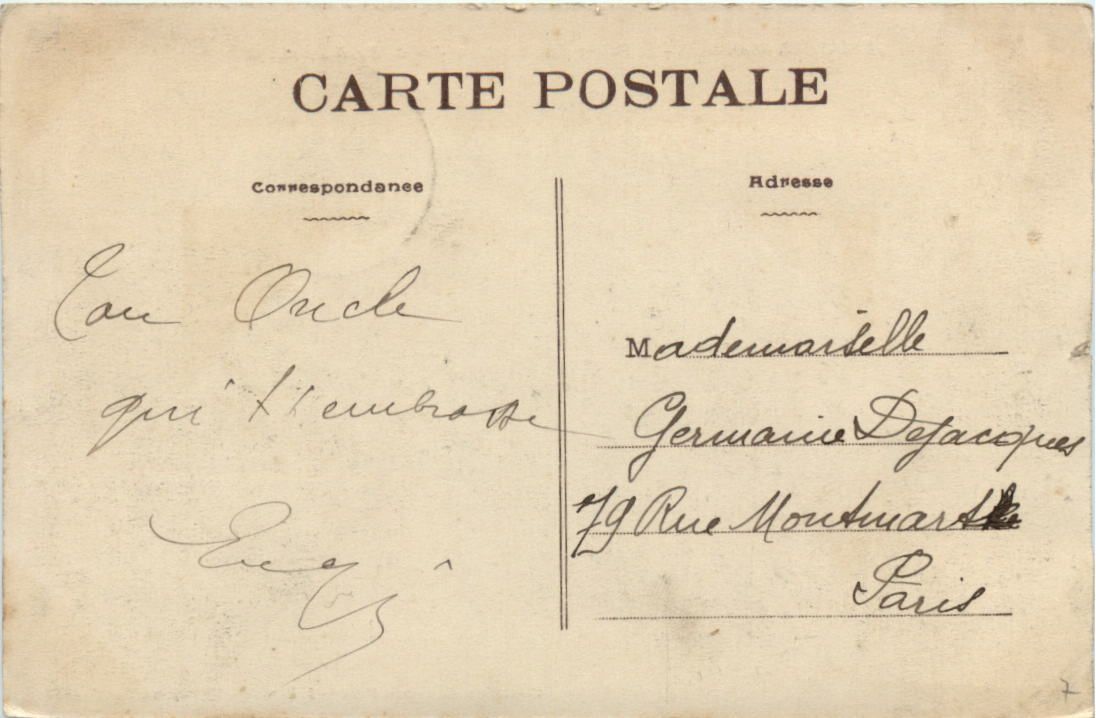 CARTE POSTALE
Correspondance
Adresse
Ton Oncle
qui t'embrasse
Mademoiselle
Germaine Dejacques
79 Rue Montmartre
Paris
7